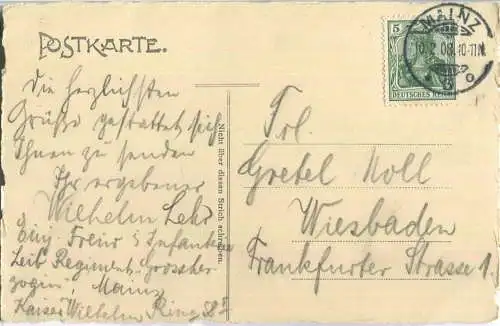 POSTKARTE.
Die herzlichsten
Grüße gestattet sich
Ihnen zu senden
Ihr ergebener
Wilhelm Lehr
Einj. Freiw. Infanterie
Leib Regiment Grossher
zogin. Mainz
Kaiser Wilhelm Ring
Nicht über diesen Strich schreiben.
5
DEUTSCHES REICH
MAINZ
Frl.
Gretel Noll
Wiesbaden
Frankfurter Strasse 1.